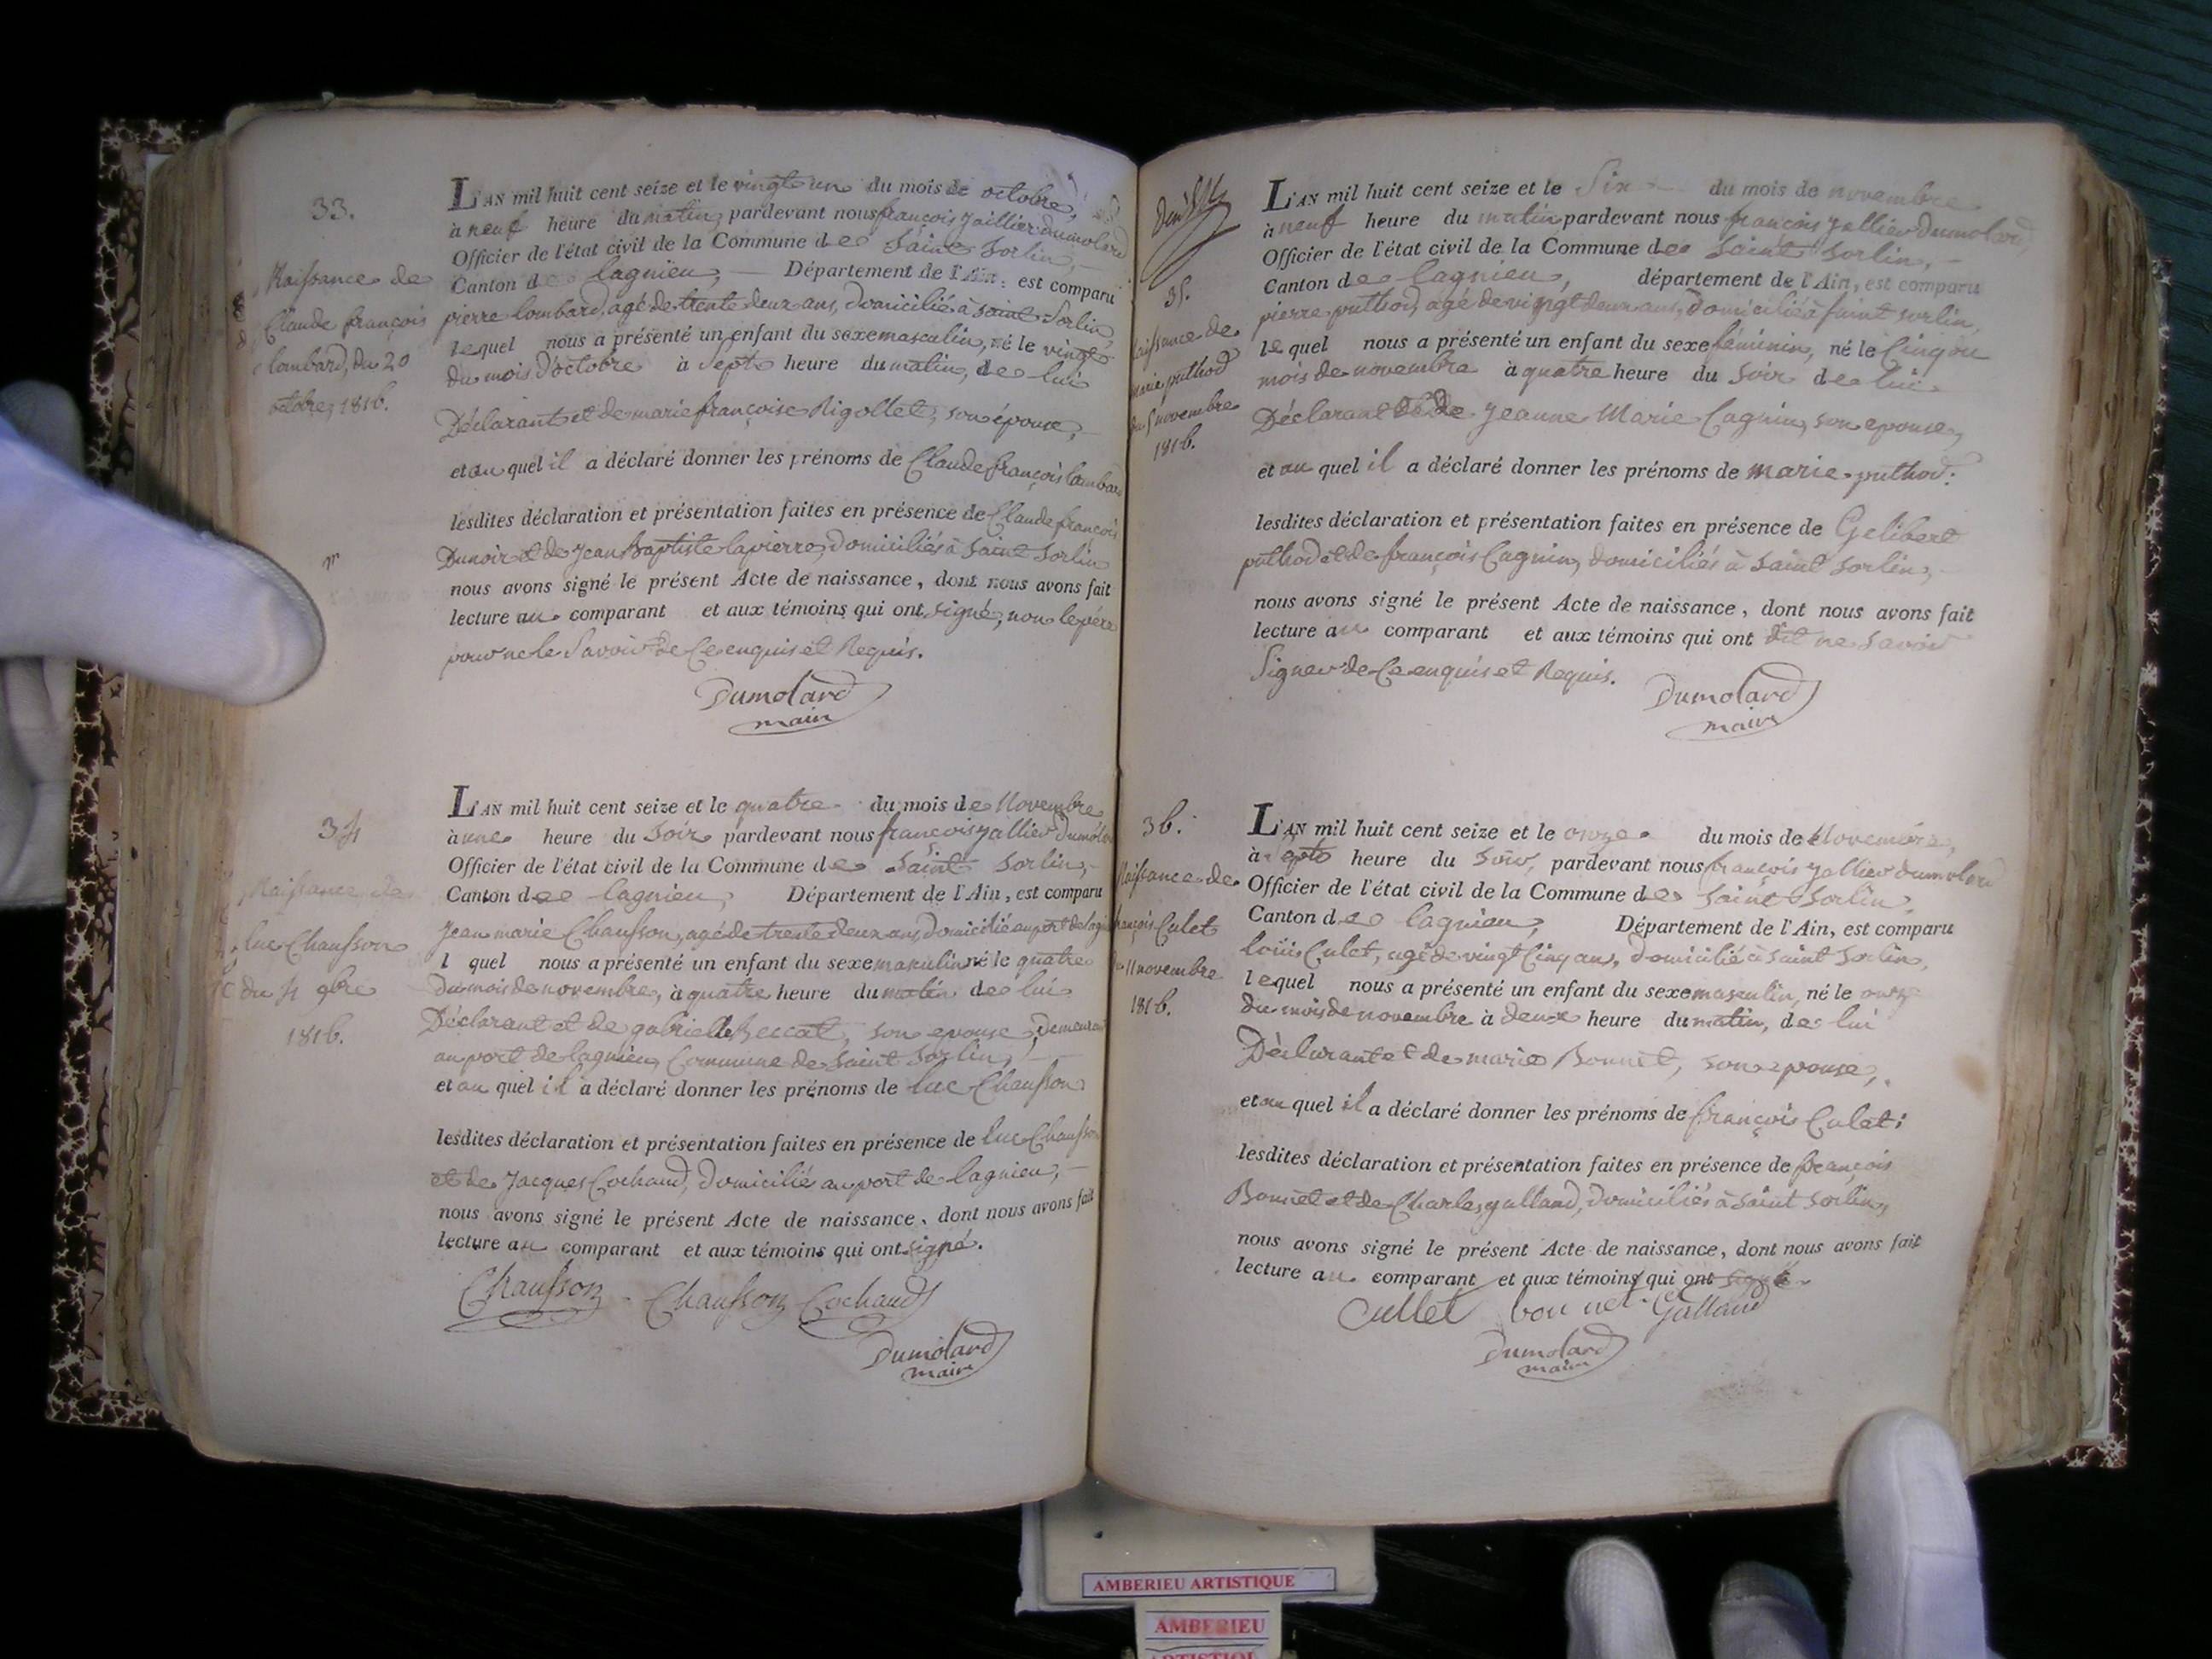 33.
Naissance de
Claude françois
lombard, du 20
octobre, 1816.
L'AN mil huit cent seize et le vingt un du mois de octobre,
à neuf heure du matin, pardevant nous françois jaillier dumolard
Officier de l'état civil de la Commune de Saint Sorlin,
Canton de lagnieu, Département de l'Ain, est comparu
pierre lombard, agé de trente deux ans, domicilié à saint Sorlin,
lequel nous a présenté un enfant du sexe masculin, né le vingt
du mois d'octobre à Sept heure du matin, de lui
Déclarant et de marie françoise Rigollet, son épouse,
et au quel il a déclaré donner les prénoms de Claude françois lombard
lesdites déclaration et présentation faites en présence de Claude françois
Dunoir et de Jean Baptiste lapierre, domiciliés à Saint Sorlin
nous avons signé le présent Acte de naissance, dont nous avons fait
lecture au comparant et aux témoins qui ont signé, non le père
pour ne le Savoir de Ce enquis et Requis.
Dumolard
maire
34
Naissance de
luc Chausson
du 4 9bre
1816.
L'AN mil huit cent seize et le quatre du mois de Novembre
à une heure du Soir pardevant nous françois jallier Dumolard
Officier de l'état civil de la Commune de Saint Sorlin,
Canton de lagnieu, Département de l'Ain, est comparu
Jean marie Chausson, agé de trente deux ans, domicilié au port de lagnieu
l quel nous a présenté un enfant du sexe masculin né le quatre
du mois de novembre, à quatre heure du matin de lui
Déclarant et de gabrielle Beccat, son epouse, demeurant
au port de lagnieu, Commune de Saint Sorlin,
et au quel il a déclaré donner les prénoms de luc Chausson
lesdites déclaration et présentation faites en présence de luc Chausson
et de Jacques Cochaud, domiciliés au port de lagnieu,
nous avons signé le présent Acte de naissance, dont nous avons fait
lecture au comparant et aux témoins qui ont signé.
Chausson Chausson Cochaud
Dumolard
maire
35.
Naissance de
marie puthod
du 5 novembre
1816.
L'AN mil huit cent seize et le Six du mois de novembre
à neuf heure du matin pardevant nous françois jallier Dumolard,
Officier de l'état civil de la Commune de Saint Sorlin,
Canton de lagnieu, département de l'Ain, est comparu
pierre puthod, agé de vingt deux ans, domicilié à saint sorlin,
le quel nous a présenté un enfant du sexe féminin, né le Cinq du
mois de novembre à quatre heure du Soir de lui
Déclarant de Jeanne Marie Cagnin, son epouse,
et au quel il a déclaré donner les prénoms de marie puthod:
lesdites déclaration et présentation faites en présence de Gelibert
puthod et de françois Cagnin, domiciliés à Saint Sorlin,
nous avons signé le présent Acte de naissance, dont nous avons fait
lecture au comparant et aux témoins qui ont dit ne savoir
Signer de Ce enquis et Requis.
Dumolard
maire
36.
Naissance de
françois Culet
du 11 novembre
1816.
L'AN mil huit cent seize et le onze du mois de Novembre,
à Sept heure du Soir, pardevant nous françois jallier dumolard
Officier de l'état civil de la Commune de Saint Sorlin,
Canton de lagnieu, Département de l'Ain, est comparu
louis Culet, agé de vingt Cinq ans, domicilié à saint Sorlin,
lequel nous a présenté un enfant du sexe masculin, né le onze
du mois de novembre à deux heure du matin, de lui
Déclarant et de marie Bonnet, son epouse,
et au quel il a déclaré donner les prénoms de françois Culet;
lesdites déclaration et présentation faites en présence de françois
Bonnet et de Charles galland, domiciliés à Saint Sorlin,
nous avons signé le présent Acte de naissance, dont nous avons fait
lecture au comparant et aux témoins qui ont signé.
Cullet bonnet Galland
Dumolard
maire
AMBERIEU ARTISTIQUE
AMBERIEU
ARTISTIQUE